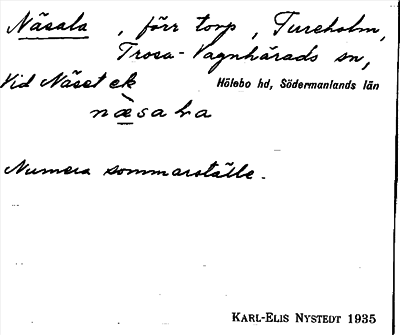 Näsala, förr torp, Tureholm,
Trosa-Vagnhärads sn,
Vid Näset ek Hölebo hd, Södermanlands län
næ̀sala
Numera sommarställe.
KARL-ELIS NYSTEDT 1935